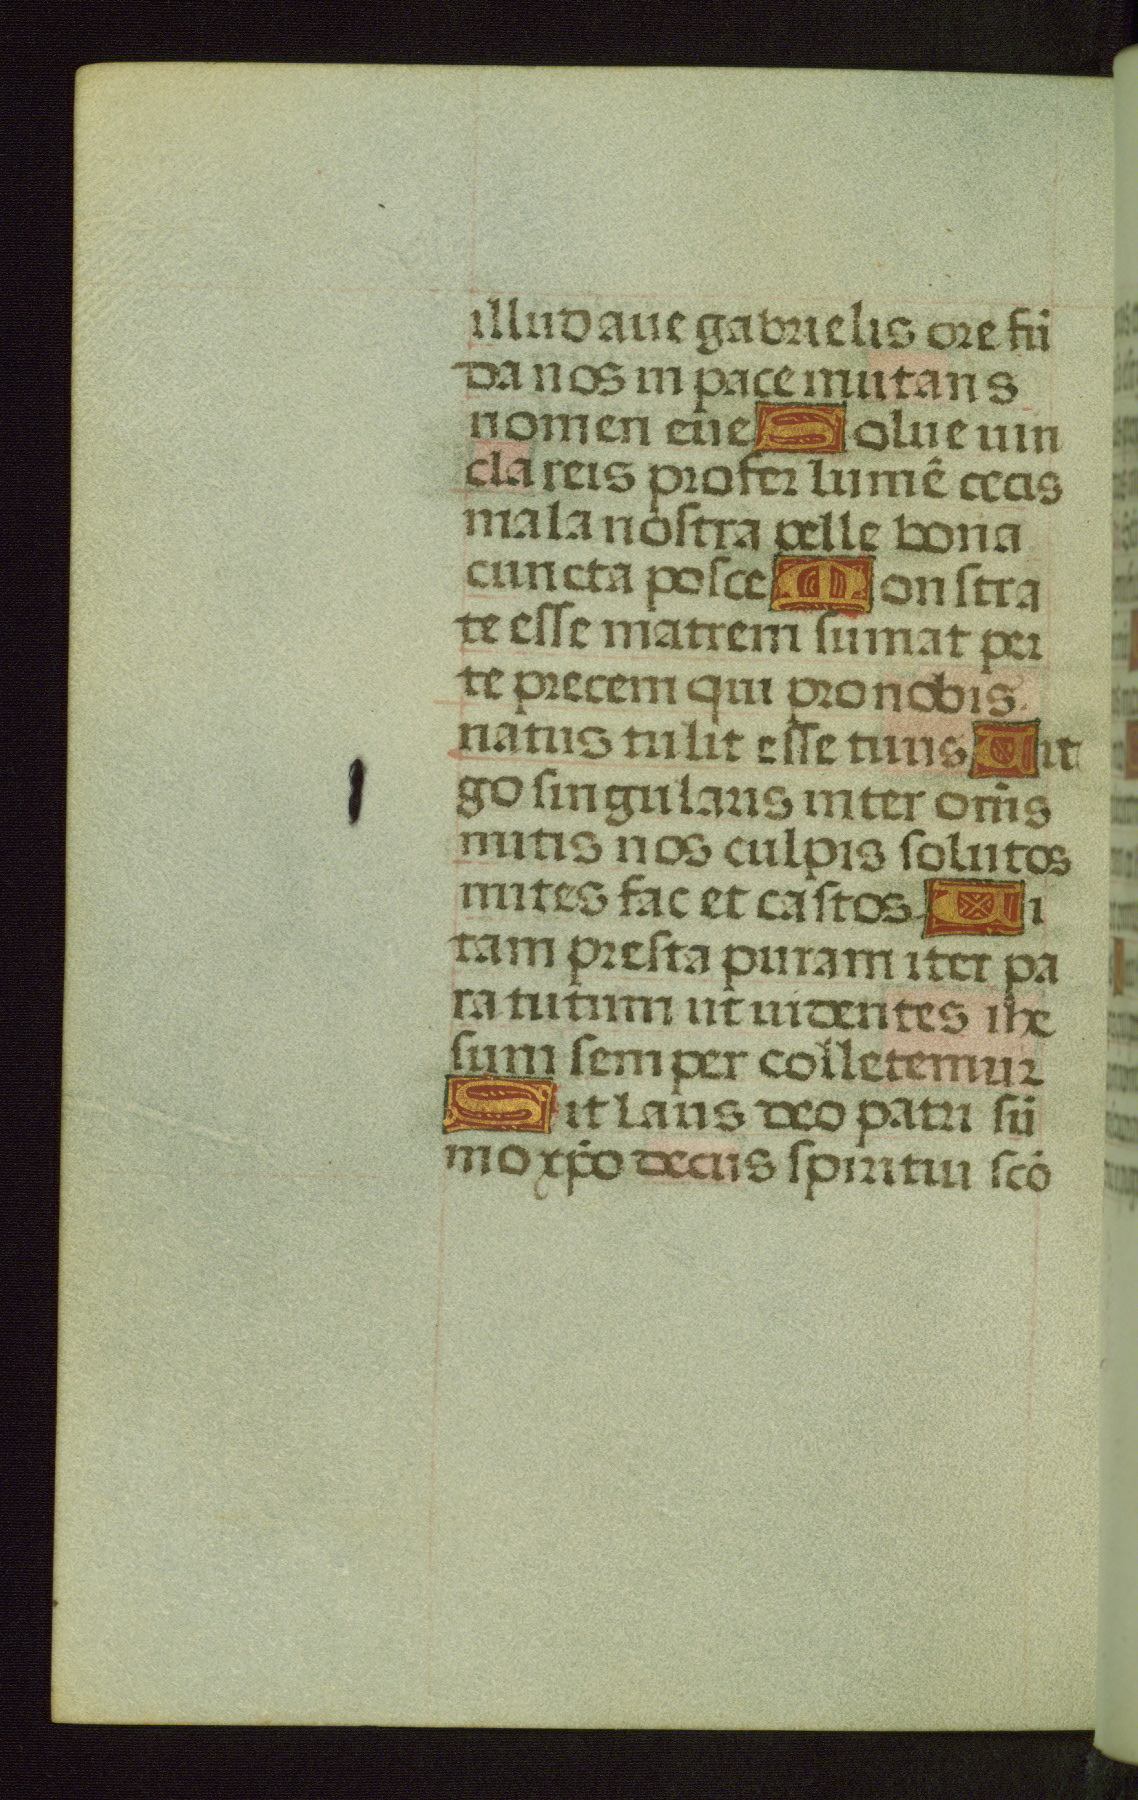 illud aue gabrielis ore fū
da nos in pace mutans
nomen eue Solue uin
cla reis profer lumē cecis
mala nostra pelle bona
cuncta posce Monstra
te esse matrem sumat per
te precem qui pro nobis
natus tulit esse tuus Uir
go singularis inter om̄s
mitis nos culpis solutos
mites fac et castos Ui
tam presta puram iter pa
ra tutum ut uidentes ihe
sum semper colletemur
Sit laus deo patri sū
mo xp̄o decus spiritui scō